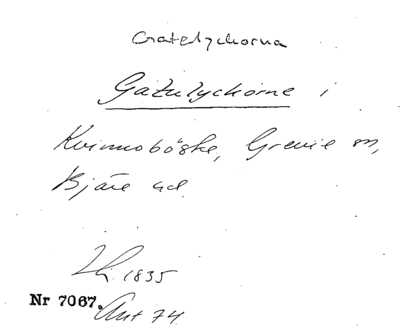 Gatelyckorna
Gatulyckorne i
Kvinnoböske, Grevie sn,
Bjäre hd.
Lh. 1835
Nr 7067. Akt 74